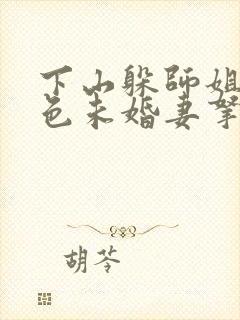 下山躲师姐
色未婚妻拏
胡苓